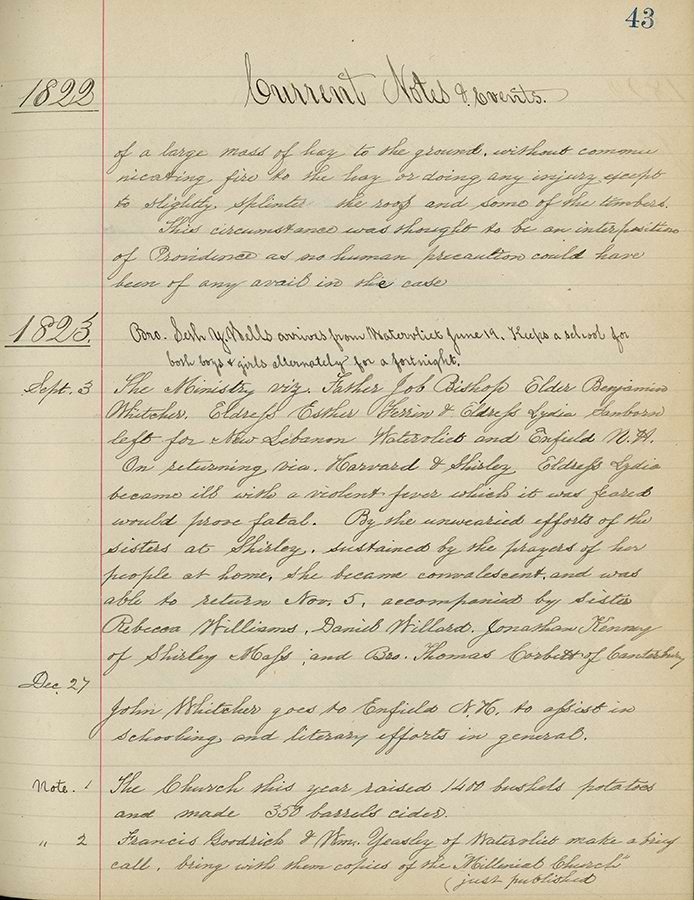 43
1822
Current Notes & Events.
of a large mass of hay to the ground, without commu
nicating fire to the hay or doing any injury except
to slightly splinter the roof and some of the timbers.
This circumstance was thought to be an interposition
of Providence as no human precaution could have
been of any avail in the case
1823.
Bro. Seth Y. Wells arrives from Watervliet June 19. Keeps a school for
both boys & girls alternately for a fortnight.
Sept. 3 The Ministry viz. Father Job Bishop Elder Benjamin
Whitcher, Eldress Esther Ferrin & Eldress Lydia Sanborn
left for New Lebanon Watervliet and Enfield N.H.
On returning, via. Harvard & Shirley, Eldress Lydia
became ill with a violent fever which it was feared
would prove fatal. By the unwearied efforts of the
sisters at Shirley, sustained by the prayers of her
people at home, she became convalescent, and was
able to return Nov. 5, accompanied by Sister
Rebecca Williams, Daniel Willard, Jonathan Kenney
of Shirley Mass, and Bro. Thomas Corbett of Canterbury
Dec. 27
John Whitcher goes to Enfield N.H. to assist in
schooling and literary efforts in general.
Note. 1 The Church this year raised 1400 bushels potatoes
and made 350 barrels cider.
" 2 Francis Goodrich & Wm. Yeasley of Watervliet make a brief
call, bring with them copies of the "Millenial Church"
(just published